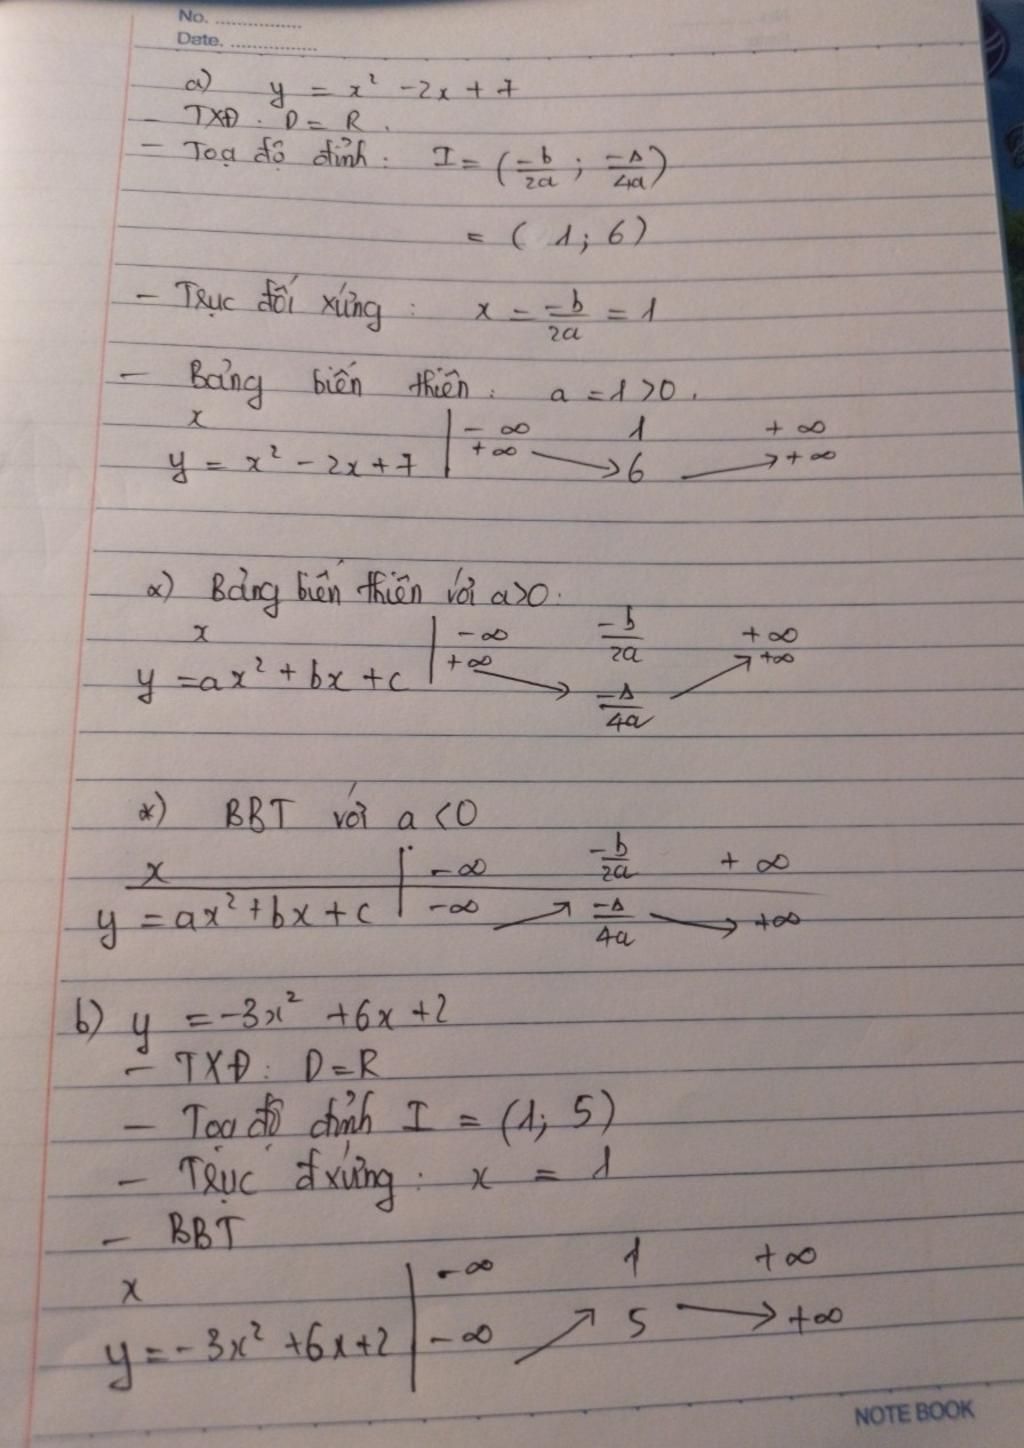 No. ...............
Date. ...............
a) y = x² - 2x + 7
- TXĐ: D = R.
- Toạ độ đỉnh: I = (-b/2a ; -Δ/4a)
= (1; 6)
- Trục đối xứng: x = -b/2a = 1
- Bảng biến thiên: a = 1 > 0.
x | -∞ 1 +∞
y = x² - 2x + 7 | +∞ ↘ 6 ↗ +∞
*) Bảng biến thiên với a>0.
x | -∞ -b/2a +∞
y = ax² + bx + c | +∞ ↘ -Δ/4a ↗ +∞
*) BBT với a < 0
x | -∞ -b/2a + ∞
y = ax² + bx + c | -∞ ↗ -Δ/4a ↘ +∞
b) y = -3x² + 6x + 2
- TXĐ: D = R
- Toạ độ đỉnh I = (1; 5)
- Trục đxứng: x = 1
- BBT
x | -∞ 1 +∞
y = -3x² + 6x + 2 | -∞ ↗ 5 ↘ +∞
NOTE BOOK